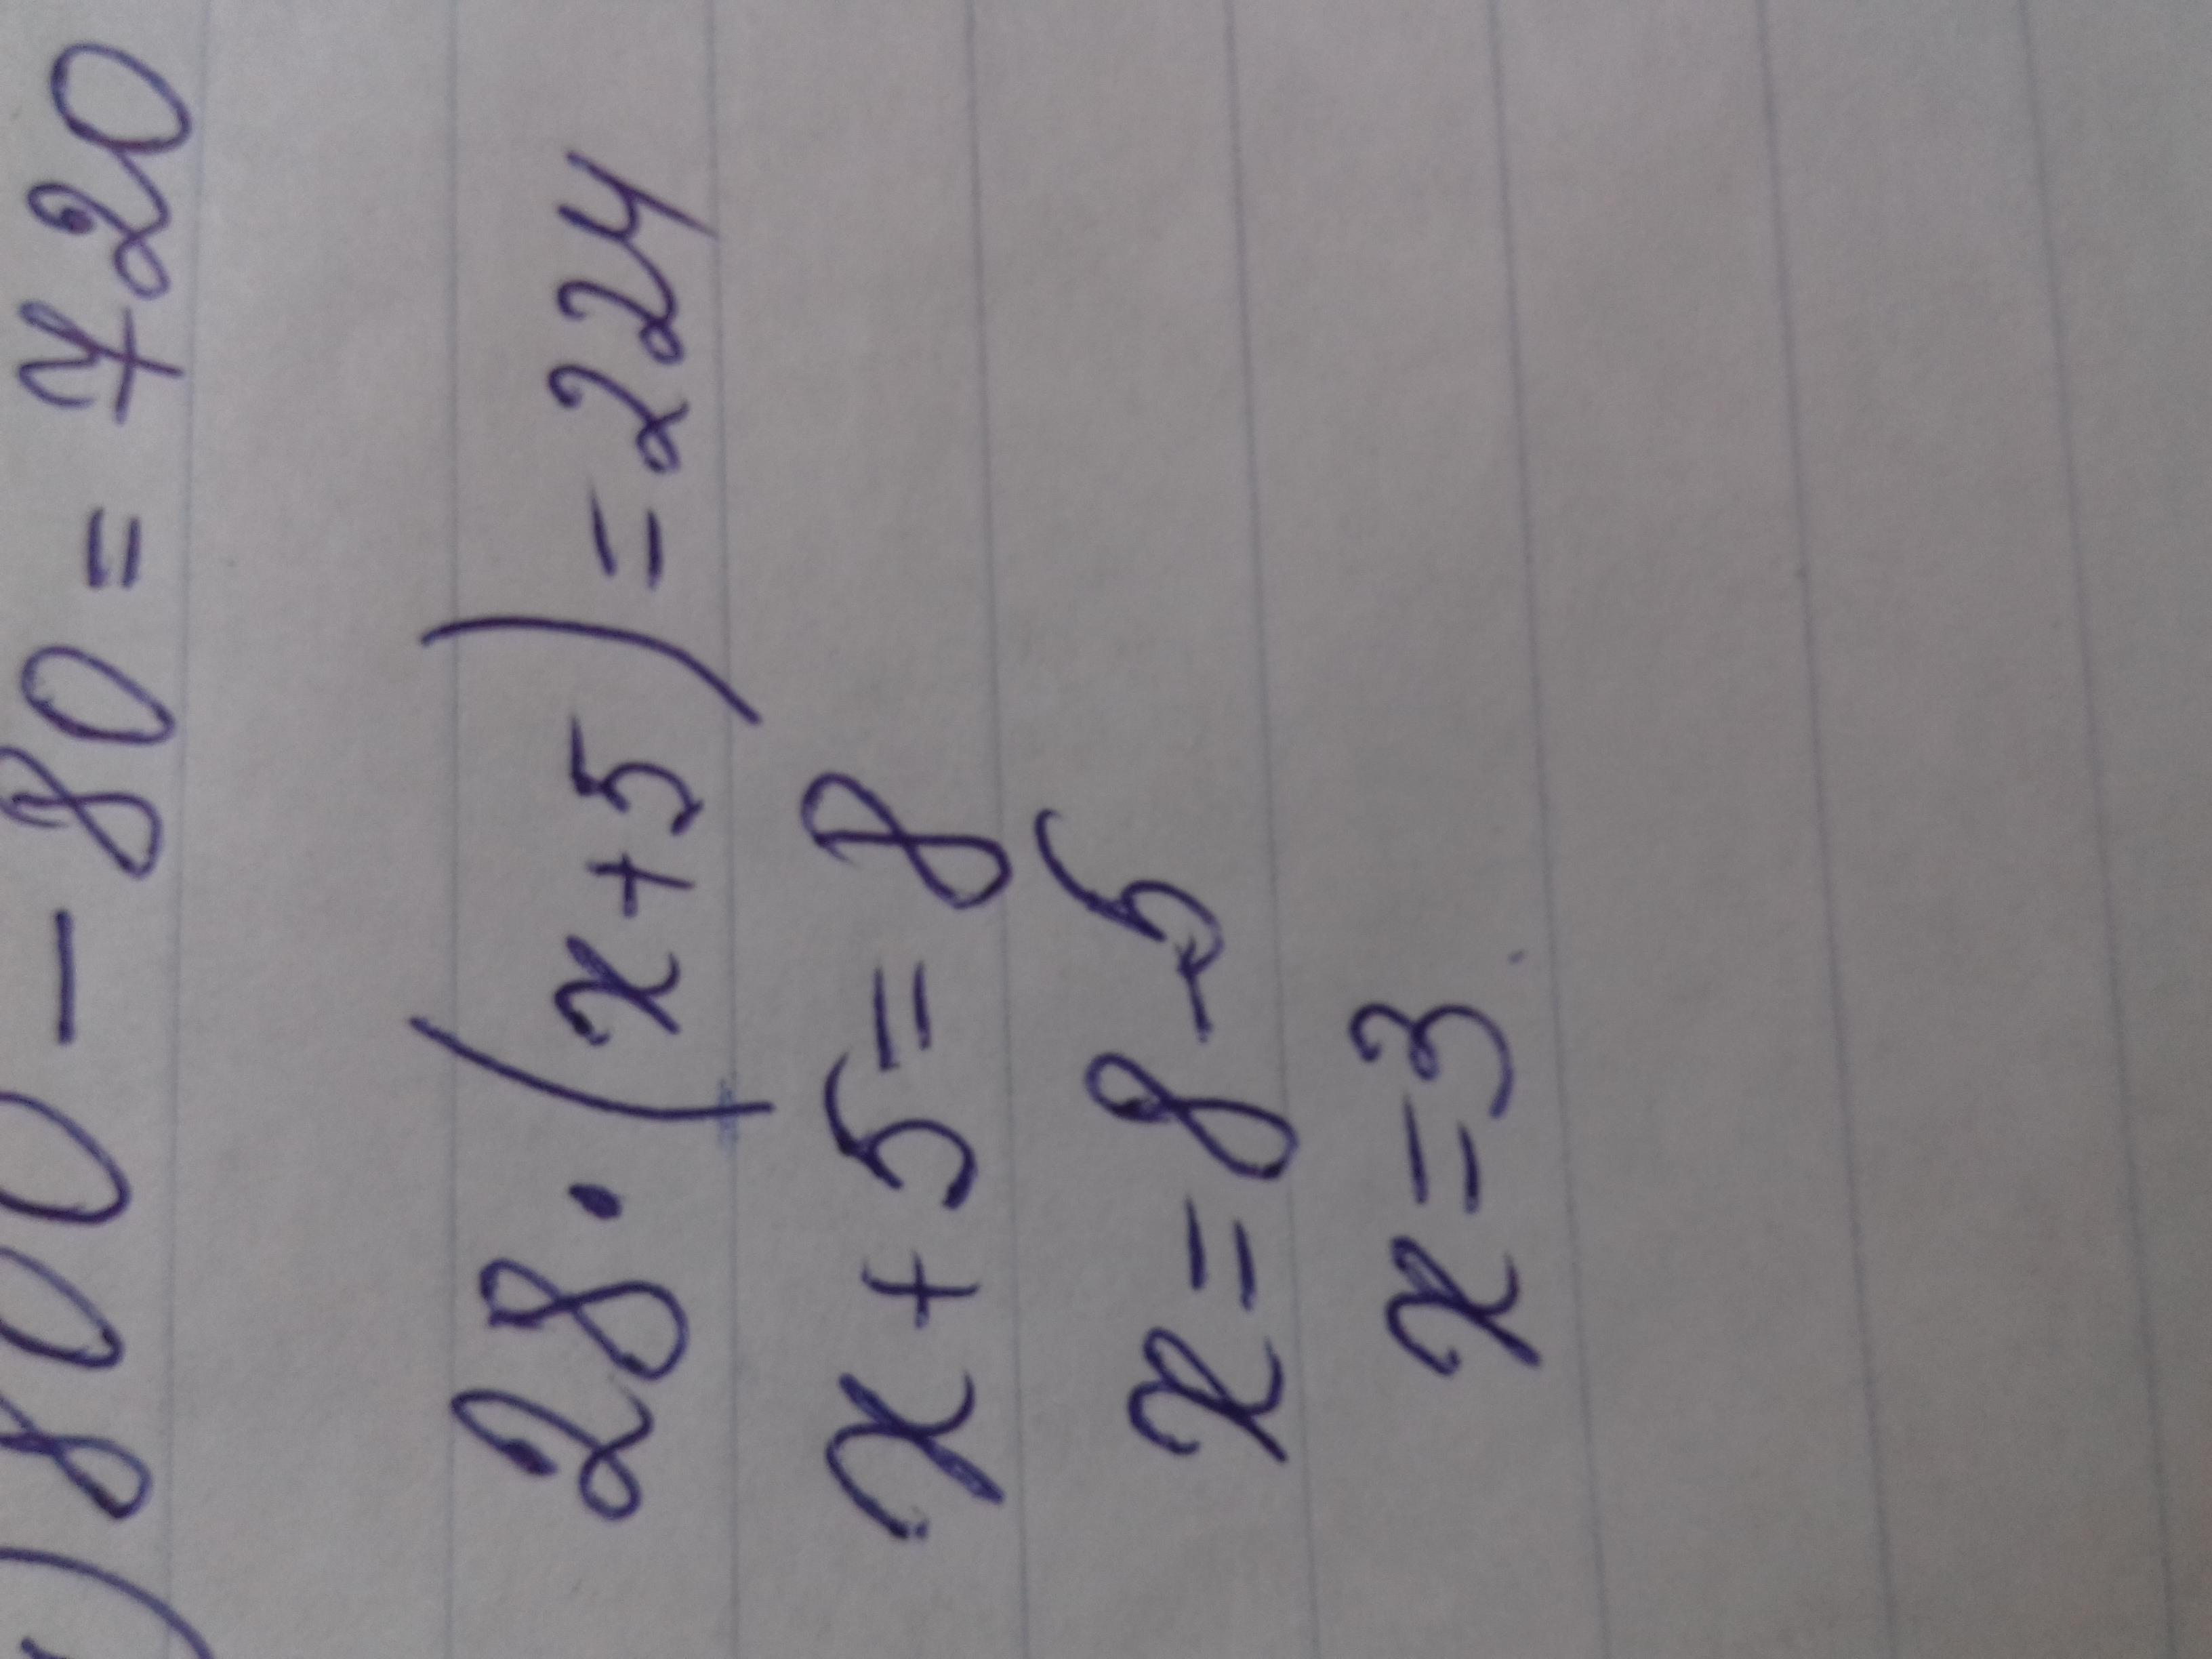 ) 800 - 80 = 720
28 · (x + 5) = 224
x + 5 = 8
x = 8 - 5
x = 3